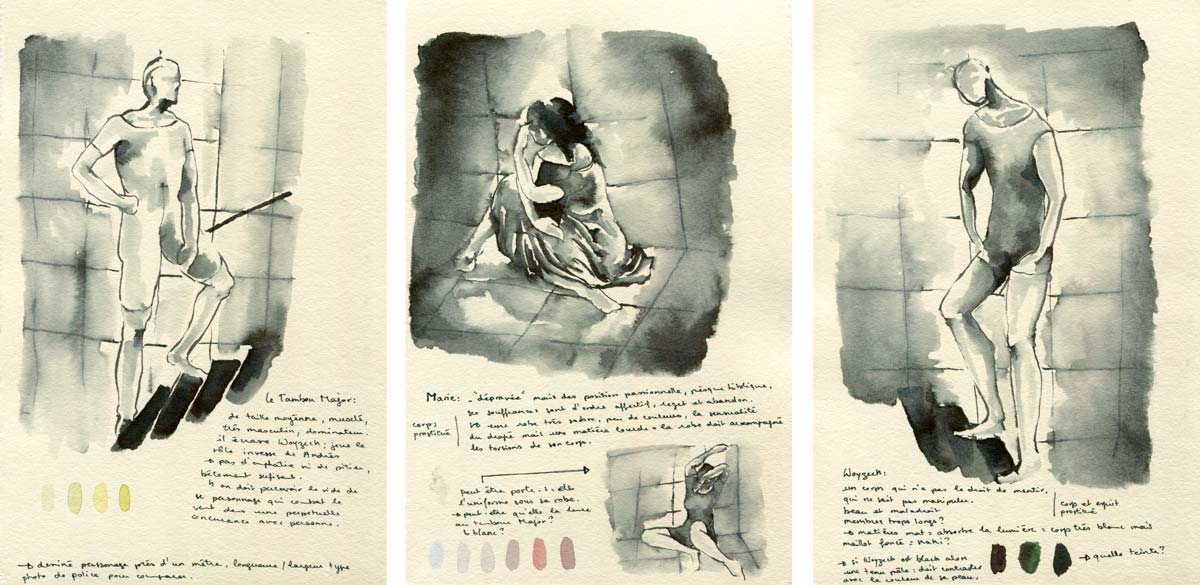 Le Tambou Major:
de taille moyenne, musclé,
très masculin, dominateur.
il écrase Woyzeck; joue le
rôle inverse de Andrès
→ pas d'empathie ni de pitié,
bêtement suffisant.
↳ on doit percevoir le vide de
se personnage qui combat le
vent dans une perpetuelle
concurence avec personne.
→ dessiné personage près d'un mètre, longueurs/largeur type
photo de police pour comparer.
Marie: "dépravée" mais des position passionnelle, presque biblique,
ses souffrances sont d'ordre affectif, regret et abandon.
↳ une robe très sobre, peu de couleurs, la sensualité
du drapé mais une matière lourde = la robe doit accompagné
les torsions de son corps.
corps
prostitué
peut être porte-t-elle
l'uniforme sous sa robe.
→ peut-être qu'elle la
au tambour Major?
↳ blanc?
Woyzeck:
un corps qui n'a pas le droit de mentir,
qui ne sait pas manipuler.
beau et maladroit
membres trops longs?
corp et esprit
prostitué
→ matières mat = absorbe la lumière = corps très blanc mais
maillot foncé = Kaki?
→ si Woyzeck est black alors
une tenu pâle = doit contraster
avec la couleur de sa peau.
→ quelle teinte?